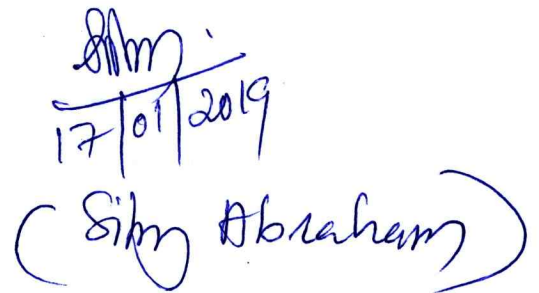 17/01/2019
(Siby Abraham)